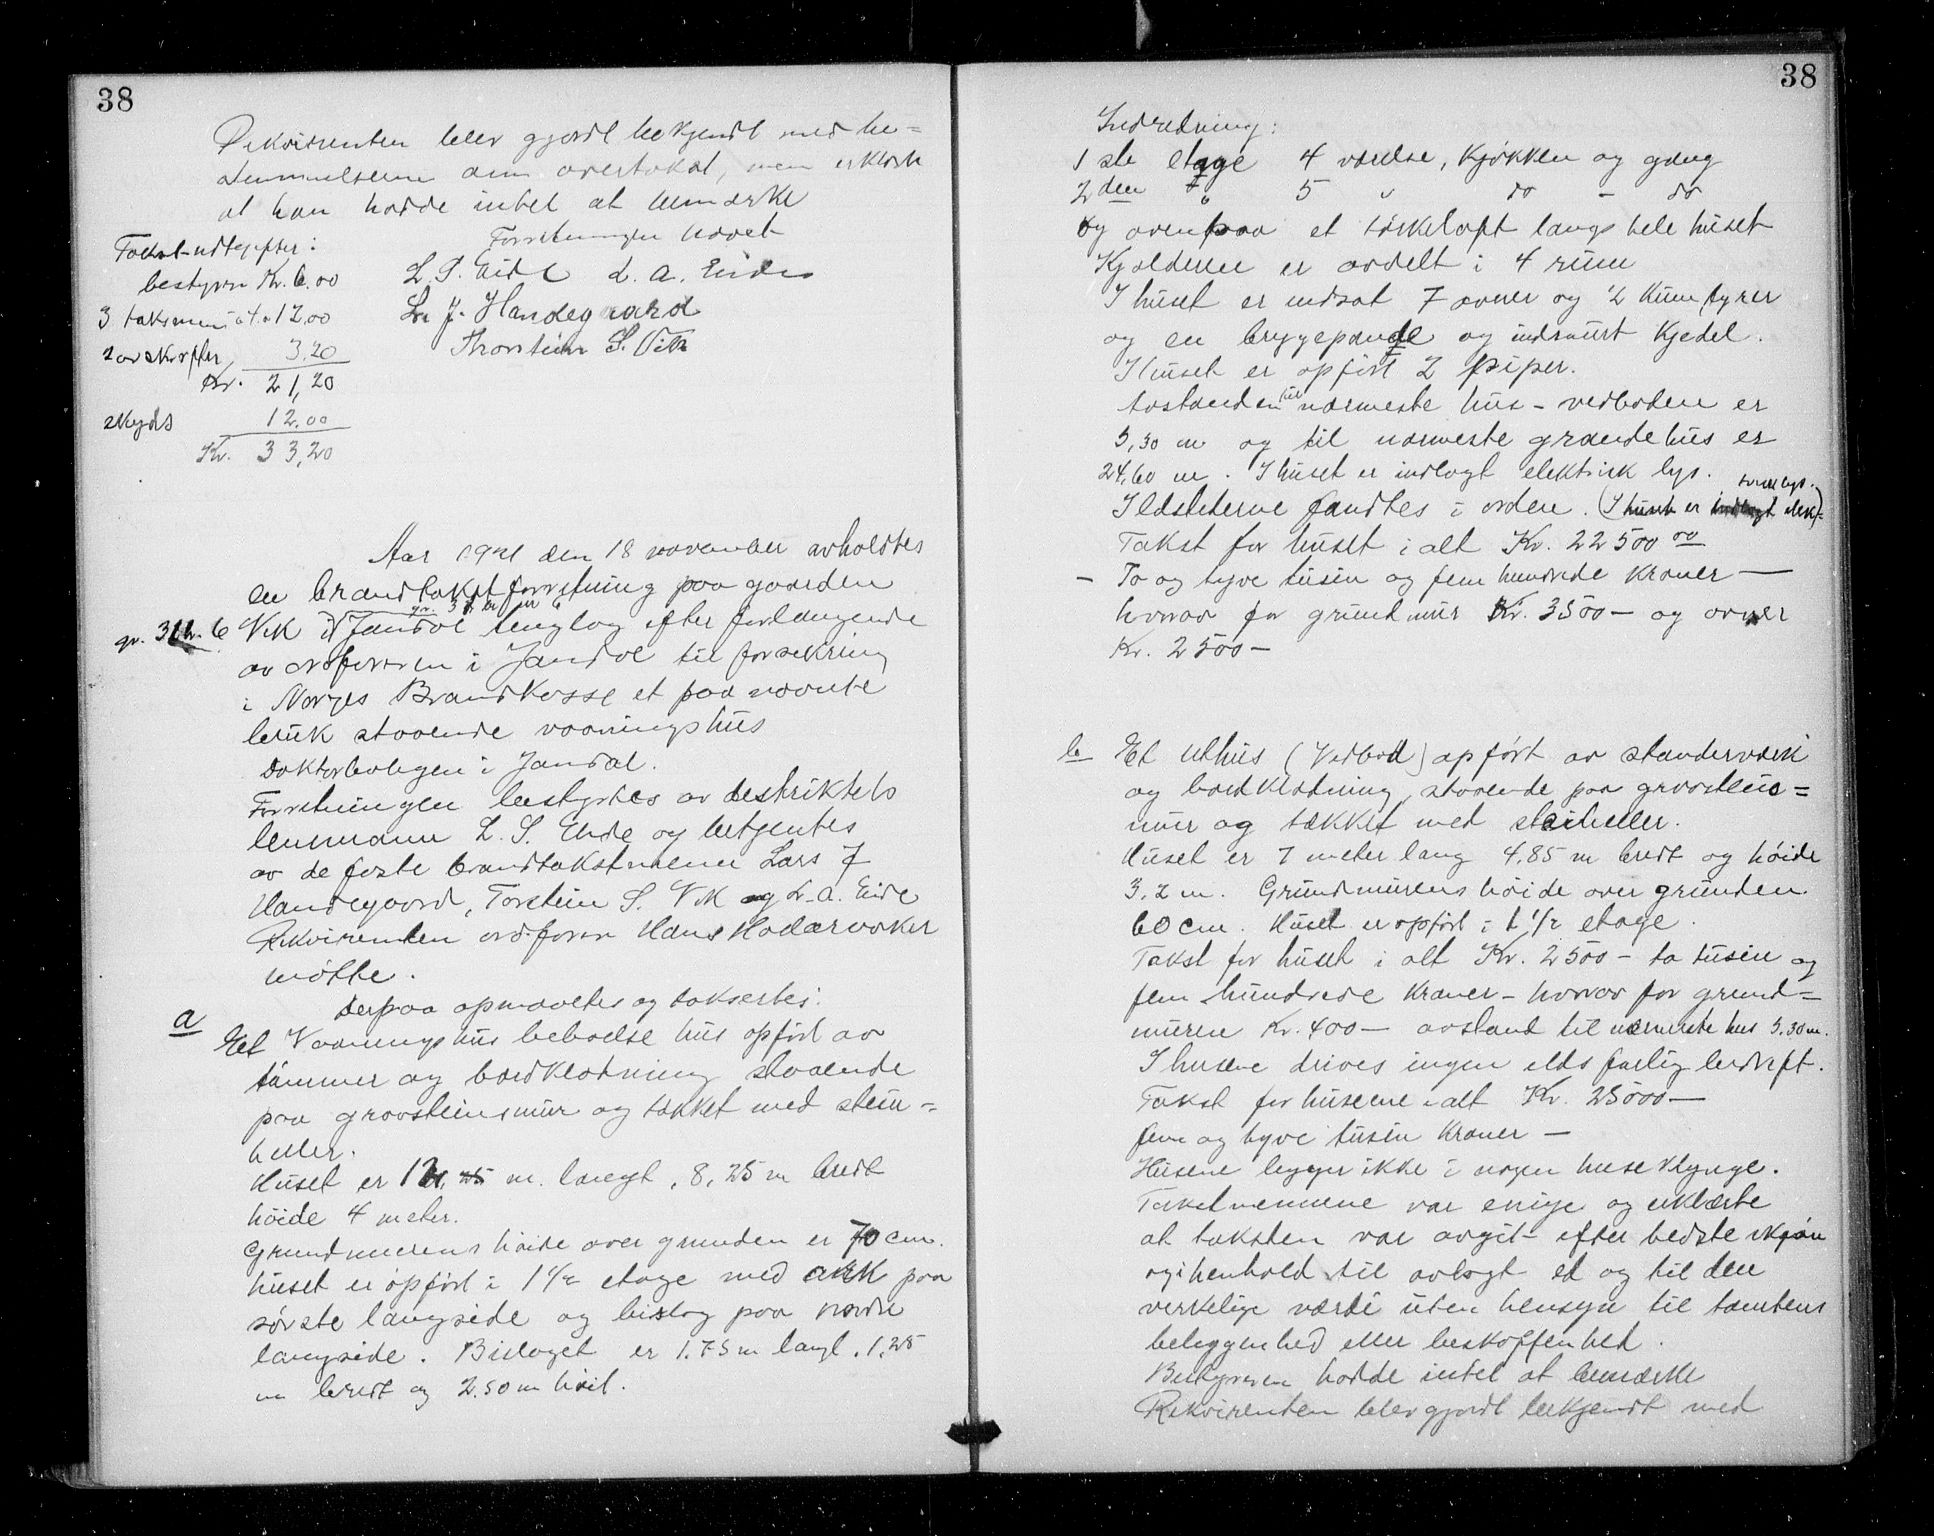 38
Rekvirenten blev gjordt bekjendt med be=
stemmelserne om overtakst, men erklærte
at han hadde intet at bemærke
Forretningen hævet
Takst-udtgifter:
bestyren Kr. 6.00
3 taksmen i alt 12.00
2 avskrifter 3,20
Kr. 21,20
skyds 12.00
Kr. 33,20
L. S. Eide L. A. Eide
Lr. J. Handegaard
Thorstein S. Vik
Aar 1921 den 18 november avholdtes
en brandtakstforretning paa gaarden
gr. 31 br. 6
Vik i Jondal tinglag efter forlangende
av ordføreren i Jondal til forsikring
i Norges Brandkasse et paa nævnte
bruk staaende vaaningshus
Doktorboligen i Jondal.
Forretningen bestyrtes av destriktets
lensmann L. S. Eide og betjentes
av de faste brandtakstmenn Lars J
Handegaard, Torstein S. Vik og L. A. Eide
Rekvirenten ordfører Hans Kodarvoker
møtte.
Derpaa opmaaltes og taksertes:
a
Et Vaaningshus beboelse hus opført av
tømmer og bordklædning staaende
paa graasteinsmur og tækket med stein=
heller.
Huset er 12,25 m. langt, 8,25 m bredt
høide 4 meter.
Grundmurens høide over grunden er 70 cm.
huset er opført i 1 1/2 etage med ark paa
søndre langside og bislag paa nordre
langside. Bislaget er 1.75 m langt. 1,25
m bredt og 2.50 m høit.
38
Indredning:
1ste etage 4 værelse, kjøkken og gang
2den " 5 " do - do
og ovenpaa et tørkeloft langs hele huset
Kjælderen er avdelt i 4 rum
I huset er indsat 7 ovner og 2 kumfyrer
og en bryggepande og indmurt kjedel.
I huset er opført 2 piper.
Avstanden til nærmeste hus - vedboden er
5,30 m og til nærmeste grandehus er
24,60 m. I huset er indlagt elektrisk lys.
Ildstederne fandtes i orden. (I huset er indlagt elek-
trisk lys.)
Takst for huset i alt Kr. 22500 00
- To og tyve tusin og fem hundrede kroner —
hvorav for grundmur Kr. 3500 - og ovner
Kr. 2500 -
b
Et uthus (Vedbod) opført av standerværk
og bordklædning, staaende paa graasteins=
mur og tækket med steinheller.
Huset er 7 meter lang 4.85 m bredt og høide
3,2 m. Grundmurens høide over grunden
60 cm. Huset er opført i 1 1/2 etage.
Takst for huset i alt Kr. 2500 - to tusin og
fem hundrede kroner - hvorav for grund=
muren Kr. 400 — avstand til nærmeste hus 5.30 m.
I husene drives ingen ildsfarlig bedrift.
Takst for husene i alt Kr. 25000 —
fem og tyve tusin kroner —
Husene ligger ikke i nogen huseklynge.
Takstmennene var enige og erklærte
at taksten var avgit efter bedste skjøn
og i henhold til avlagt ed og til den
verkelige værdi uten hensyn til tomtens
beliggenhed eller beskaffenhed.
Bestyreren hadde intet at bemærke
Rekvirenten blev gjordt bekjendt med